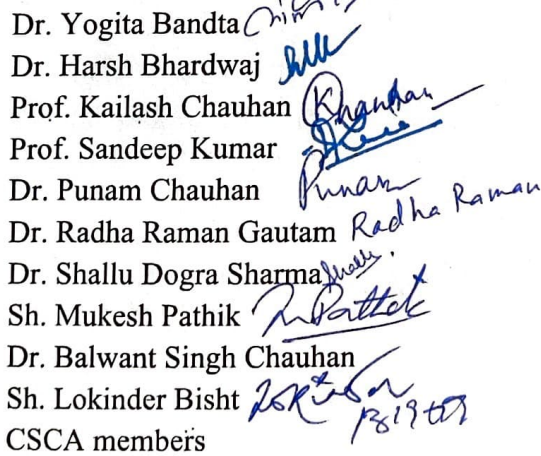 Dr. Yogita Bandta
Dr. Harsh Bhardwaj
Prof. Kailash Chauhan Kchauhan
Prof. Sandeep Kumar
Dr. Punam Chauhan Punam
Dr. Radha Raman Gautam Radha Raman
Dr. Shallu Dogra Sharma
Sh. Mukesh Pathik
Dr. Balwant Singh Chauhan
Sh. Lokinder Bisht
CSCA members